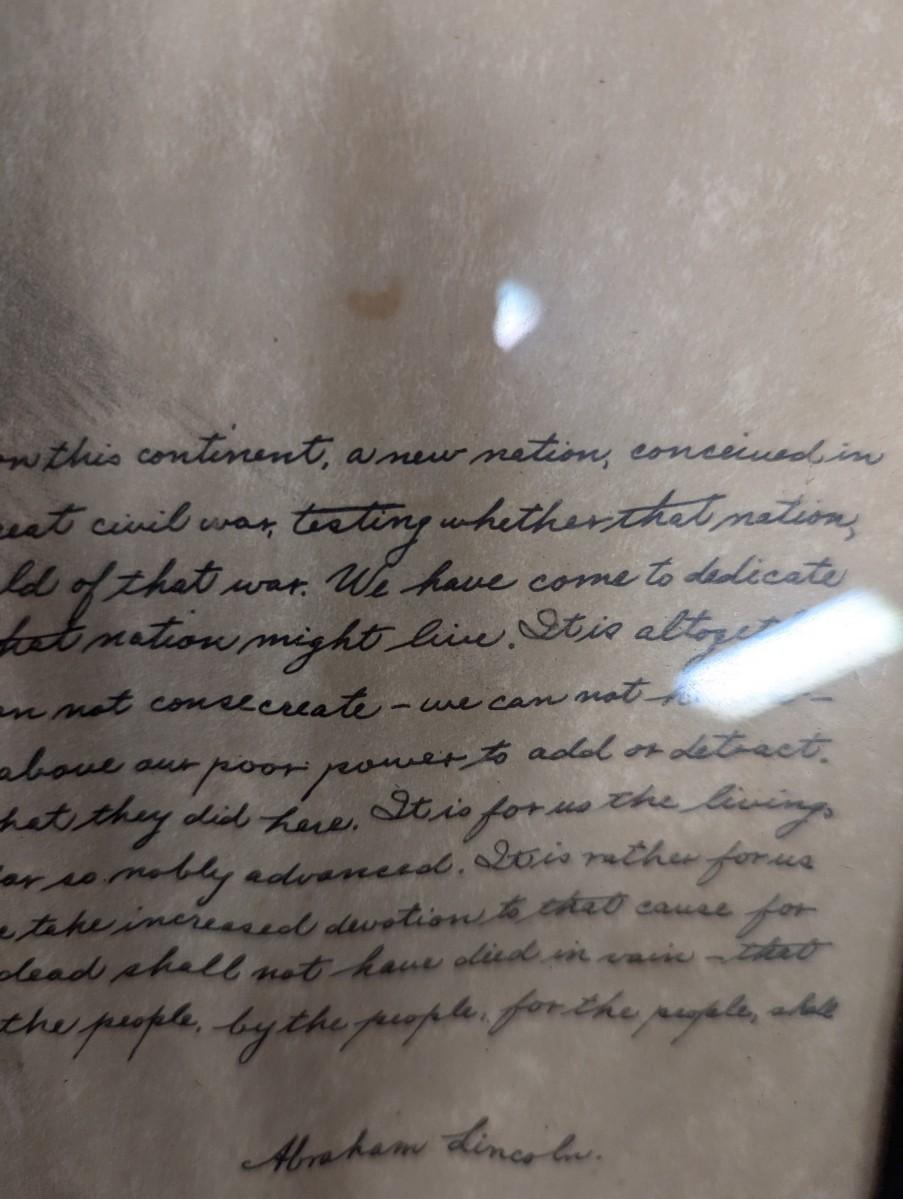 on this continent, a new nation, conceived in
eat civil war, testing whether that nation,
ld of that war. We have come to dedicate
hat nation might live. It is altoget
an not consecreate - we can not h
above our poor power to add or detract.
hat they did here. It is for us the living,
ar so nobly advanced. It is rather for us
e take increased devotion to that cause for
dead shall not have died in vain - that
the people, by the people, for the people, shall
Abraham Lincoln.